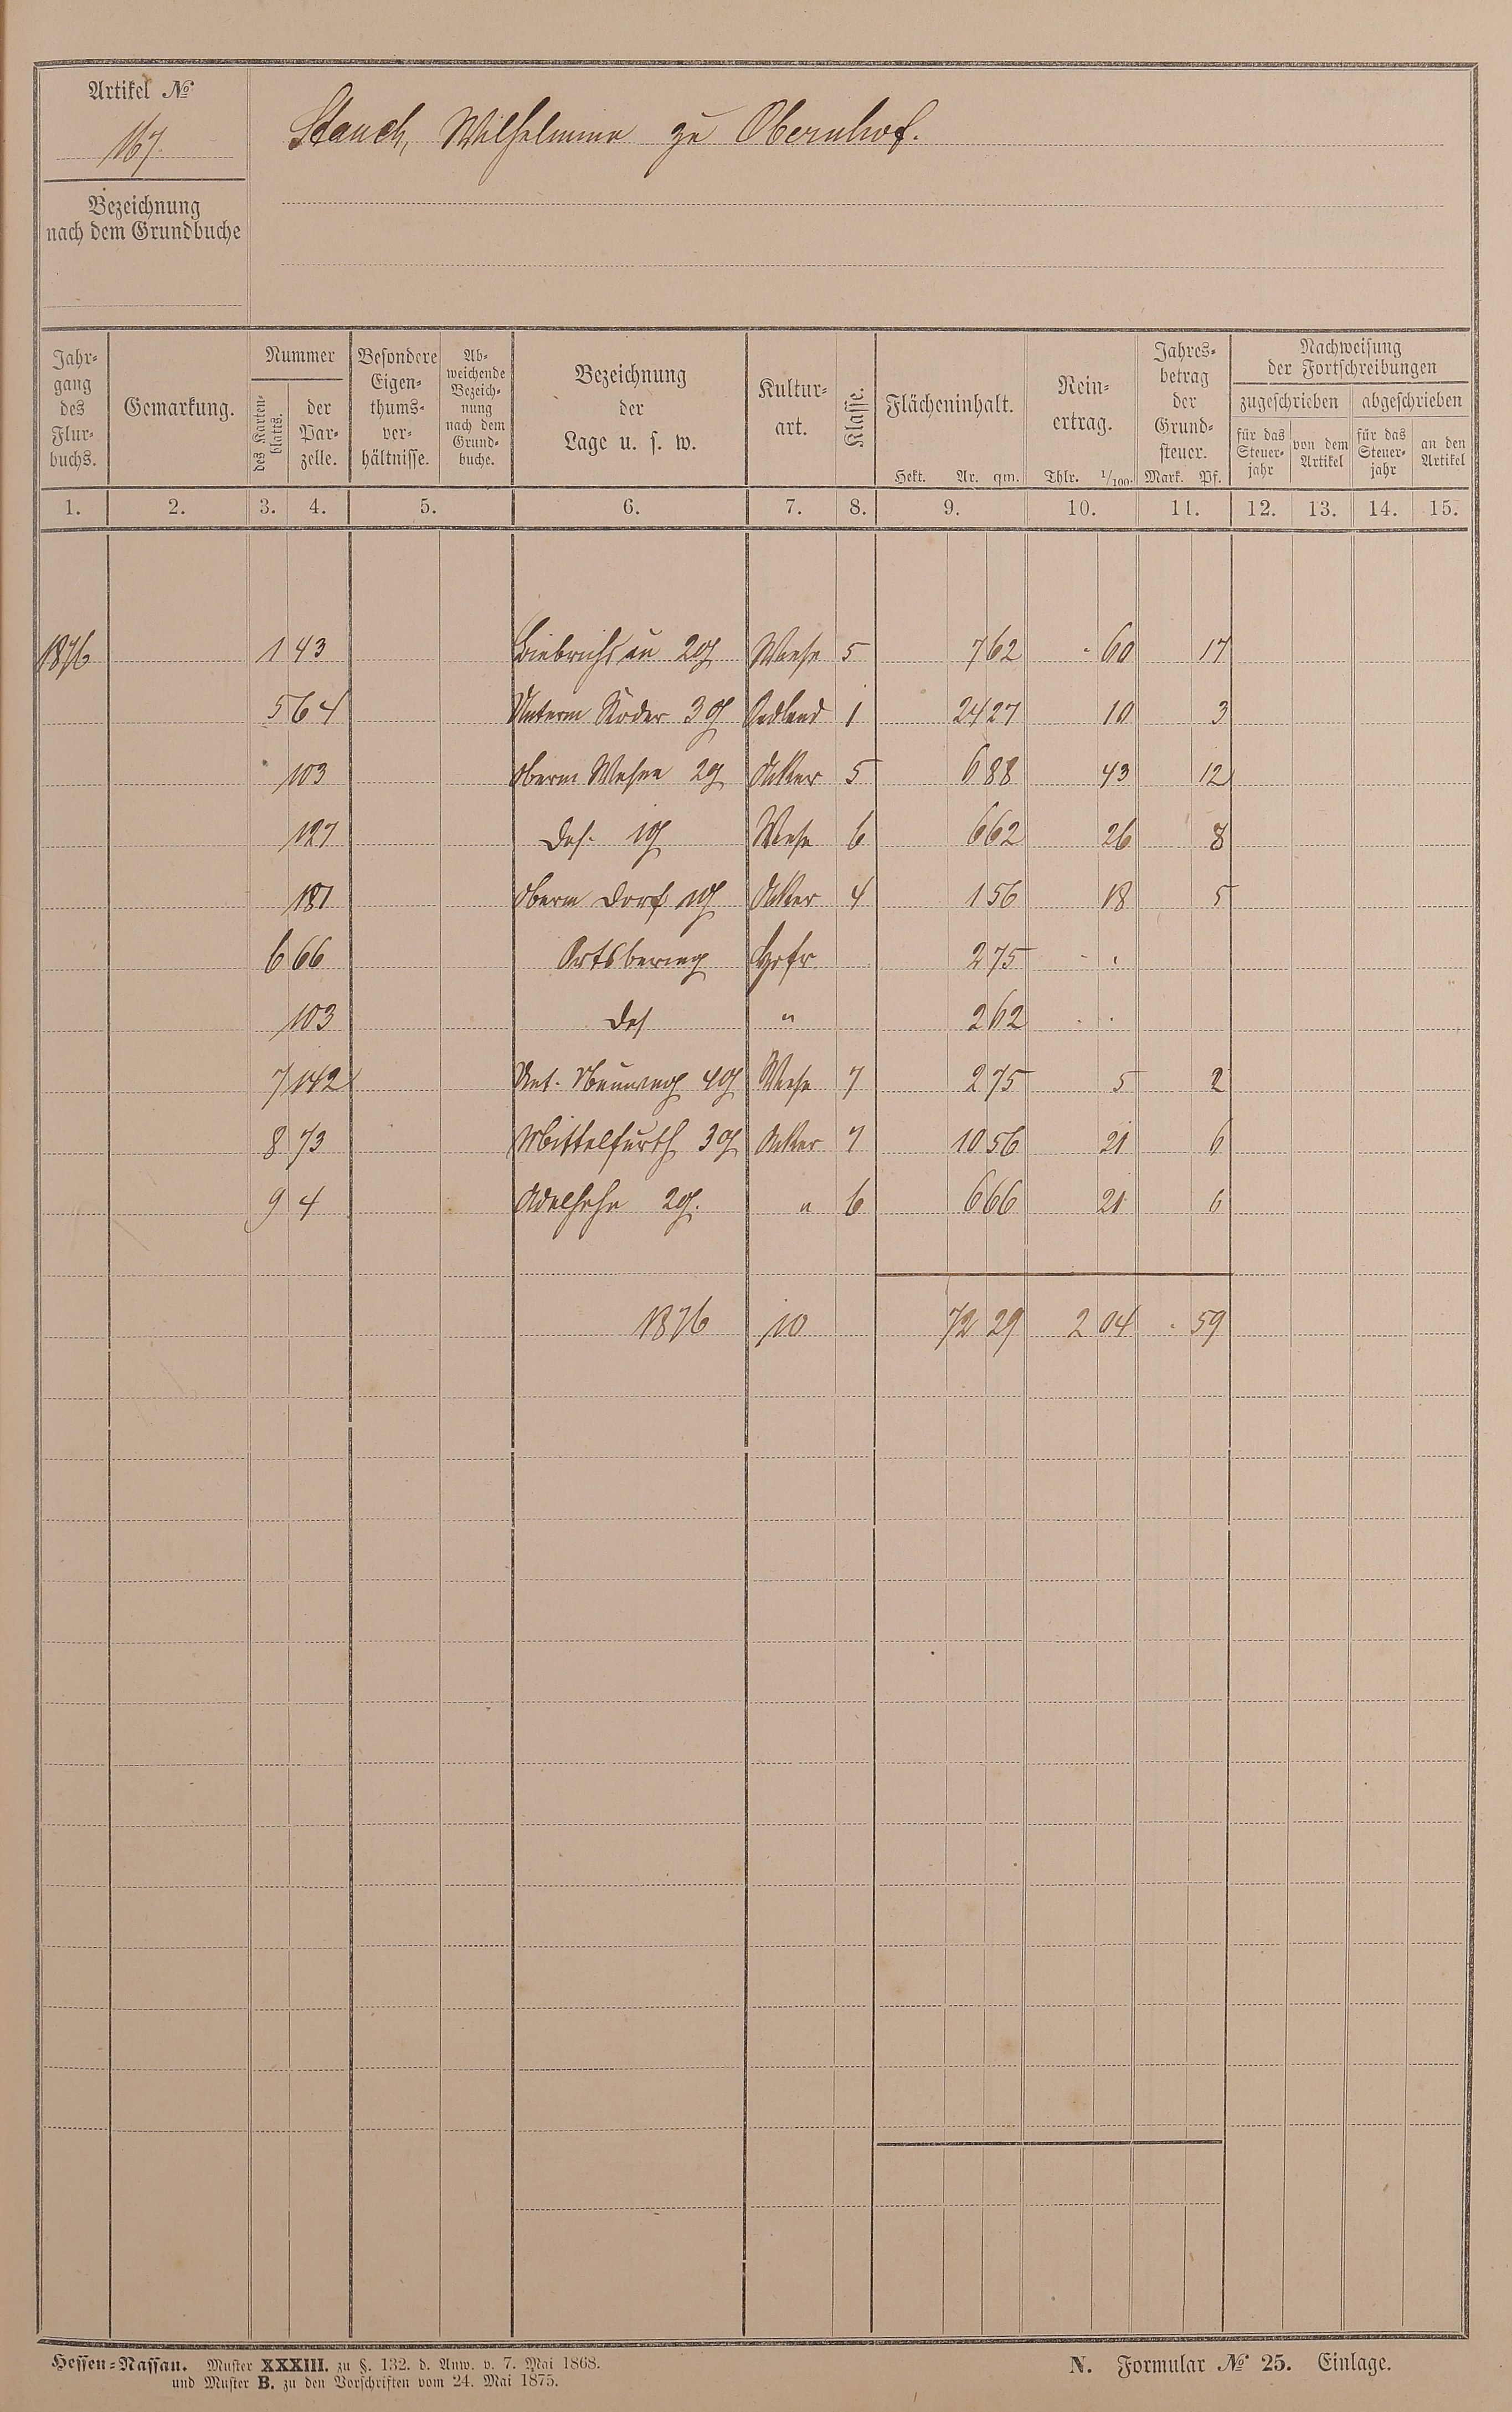 Artikel №
167.
Stauch, Wilhelmine zu Obernhof.
Bezeichnung
nach dem Grundbuche
Jahr-
gang
des
Flur-
buchs.
Gemarkung.
Nummer
des Karten-
blatts.
der
Par-
zelle.
Besondere
Eigen-
thums-
ver-
hältnisse.
Ab-
weichende
Bezeich-
nung
nach dem
Grund-
buche.
Bezeichnung
der
Lage u. s. w.
Kultur-
art.
Klasse.
Flächeninhalt.
Hekt. Ar. qm.
Rein-
ertrag.
Thlr. 1/100.
Jahres-
betrag
der
Grund-
steuer.
Mark. Pf.
Nachweisung
der Fortschreibungen
zugeschrieben abgeschrieben
für das
Steuer-
jahr
von dem
Artikel
für das
Steuer-
jahr
an den
Artikel
1. 2. 3. 4. 5. 6. 7. 8. 9. 10. 11. 12. 13. 14. 15.
1876 1 43 2g Wiese 5 7 62 60 17
5 64 Unterm 3g Oedland 1 24 27 10 3
103 Oberm 2g Acker 5 6 88 43 12
127 Das. 1g Wiese 6 6 62 26 8
181 Oberm Dorf 1g Acker 4 1 56 18 5
6 66 Ortsbering Hofr 2 75
103 Das " 2 62
7 142 Unt. 4g Wiese 7 2 75 5 2
8 73 Mittelfurth 3g Acker 7 10 56 21 6
9 4 2g. " 6 6 66 21 6
1876 10 72 29 2 04 59
Hessen-Nassau. Muster XXXIII. zu §. 132. d. Anw. v. 7. Mai 1868.
und Muster B. zu den Vorschriften vom 24. Mai 1875.
N. Formular № 25. Einlage.